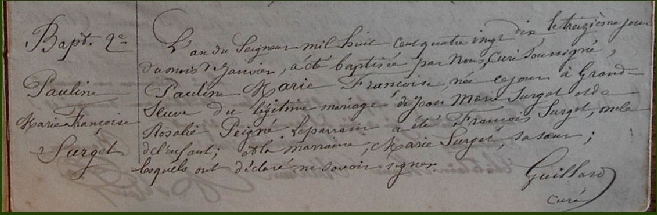 Bapt. 2e
Pauline
Marie Françoise
Surget
L'an du Seigneur mil huit cent quatre vingt dix le treizième jour
du mois de Janvier, a été baptisée par Nous, Curé Soussigné,
Pauline Marie Françoise, née ce jour à Grand-
lieue du légitime mariage de Jean Marie Surget et de
Rosalie Seigne. Le parrain a été François Surget, oncle
de l'enfant; et la marraine, Marie Surget, sa sœur;
lesquels ont déclaré ne savoir signer.
Guillard
curé